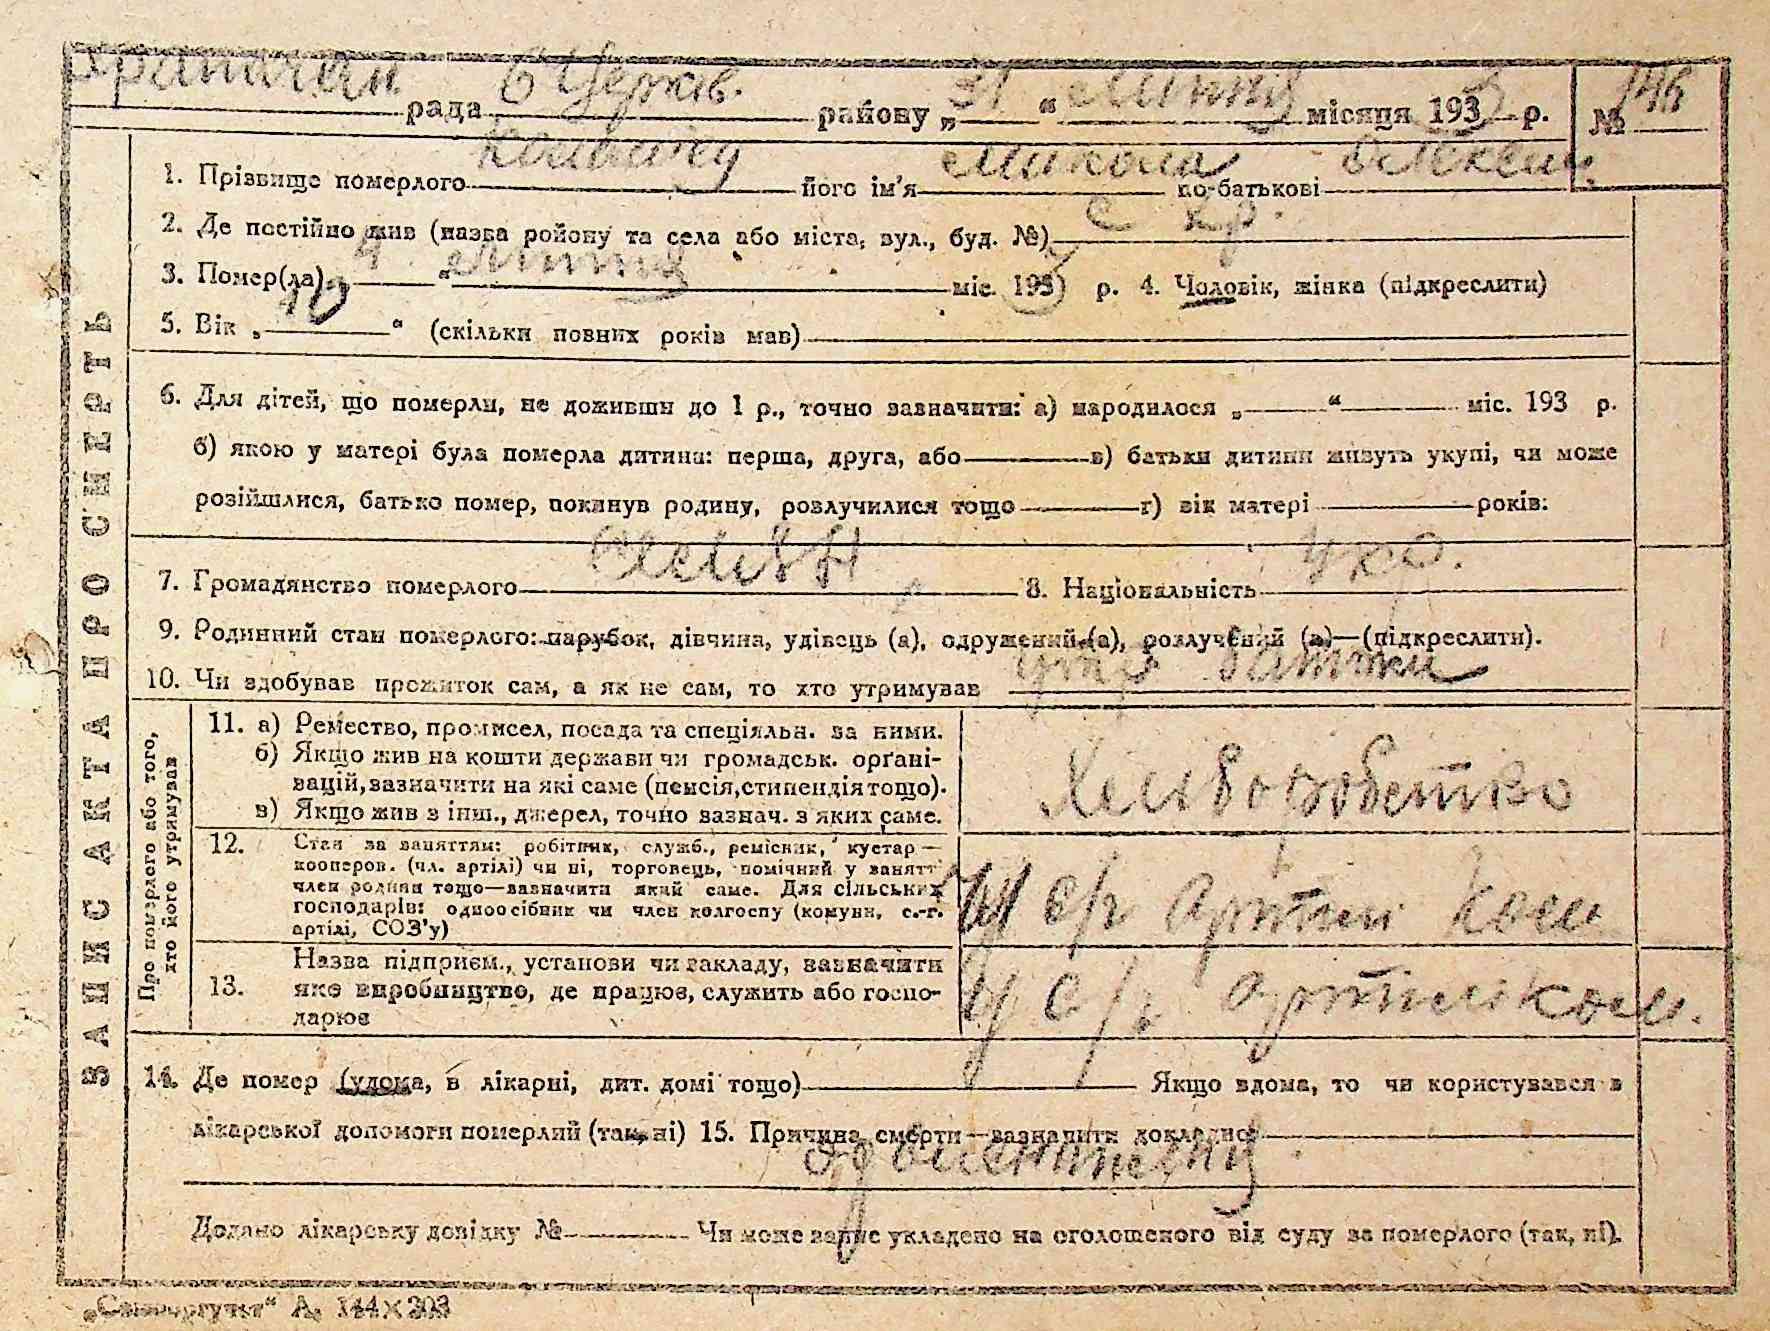 Б Церків.
рада району „ 31 “ липня місяця 1933 р. № 146
1. Прізвище померлого його ім’я Микола по-батькові Олексій.
2. Де постійно жив (назва району та села або міста, вул., буд. №) с хр.
3. Помер(ла) 4 “ липня міс. 1933 р. 4. Чоловік, жінка (підкреслити)
5. Вік „ 10 “ (скільки повних років мав)
6. Для дітей, що померли, не доживши до 1 р., точно зазначити: а) народилося „ “ міс. 193 р.
б) якою у матері була померла дитина: перша, друга, або в) батьки дитини живуть укупі, чи може
розійшлися, батько помер, покинув родину, розлучилися тощо г) вік матері років:
7. Громадянство померлого 8. Національність укр.
9. Родинний стан померлого: парубок, дівчина, удівець (а), одружений (а), розлучений (а)—(підкреслити).
10. Чи здобував прожиток сам, а як не сам, то хто утримував утр батьки
ЗАПИС АКТА ПРО СМЕРТЬ
Про померлого або того, хто його утримував
11. а) Ремество, промисел, посада та спеціяльн. за ними.
б) Якщо жив на кошти держави чи громадськ. орґані-
зацій, зазначити на які саме (пенсія, стипендія тощо).
в) Якщо жив з інш., джерел, точно зазнач. з яких саме.
Хліборобство
12. Стан за заняттям: робітник, служб., ремісник, кустар—
кооперов. (чл. артілі) чи ні, торговець, помічний у занятт
член родини тощо—зазначити який саме. Для сільських
господарів: одноосібник чи член колгоспу (комуни, с.-г.
артілі, СОЗ’у)
с/г артілі
13. Назва підприєм., установи чи закладу, зазначити
яке виробництво, де працює, служить або госпо-
дарює
у с/г артілі
14. Де помер (удома, в лікарні, дит. домі тощо) Якщо вдома, то чи користувався з
лікарської допомоги померлий (так, ні) 15. Причина смерти—зазначити докладно
Додано лікарську довідку № Чи може запис укладено на оголошеного від суду за померлого (так, ні).
А, 144×203